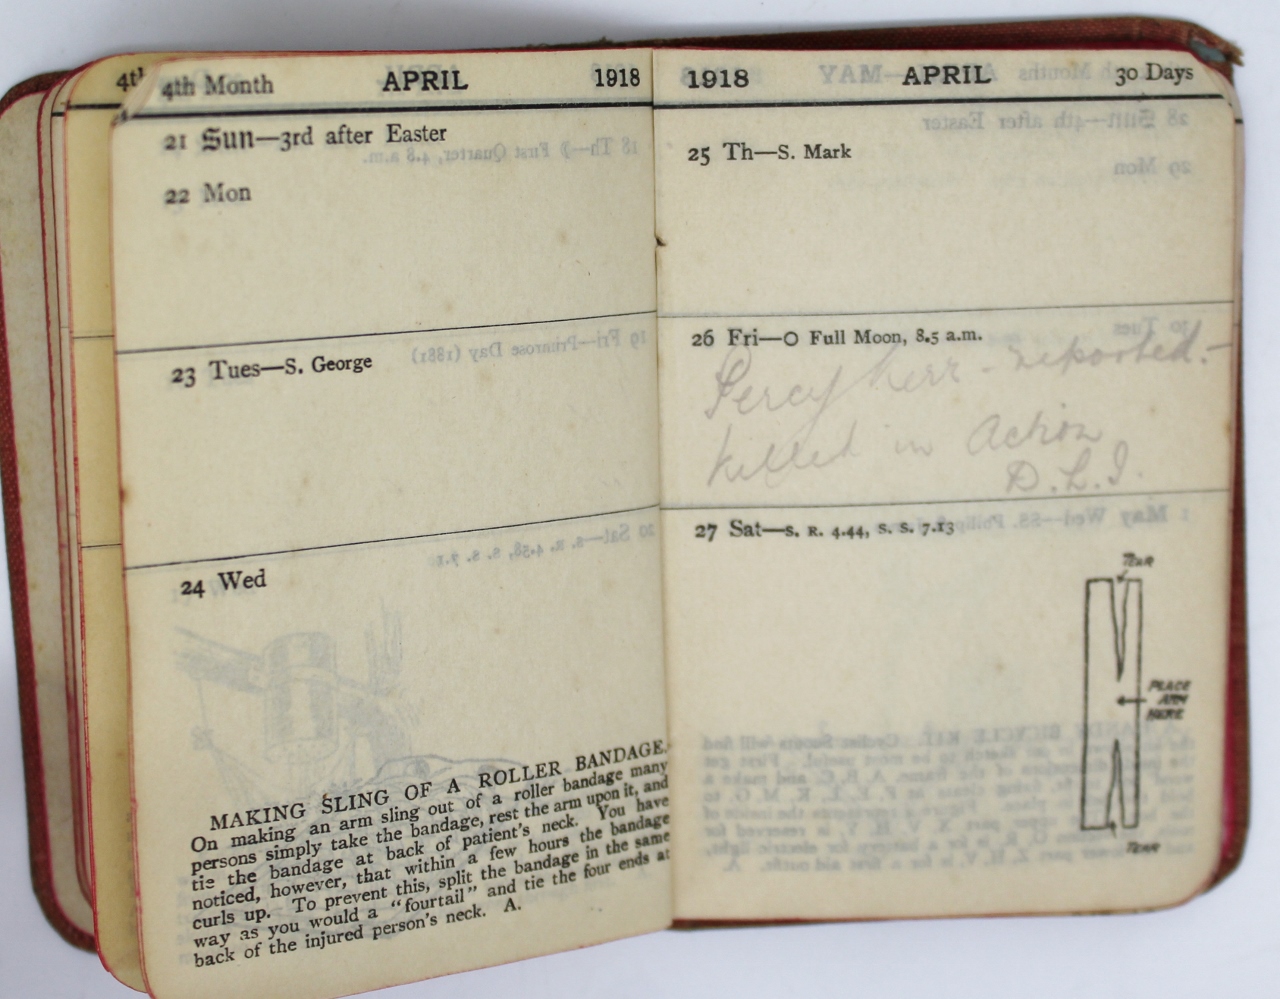 4th
4th Month APRIL 1918
21 Sun—3rd after Easter
22 Mon
23 Tues—S. George
24 Wed
MAKING SLING OF A ROLLER BANDAGE.
On making an arm sling out of a roller bandage many
persons simply take the bandage, rest the arm upon it, and
tie the bandage at back of patient's neck. You have
noticed, however, that within a few hours the bandage
curls up. To prevent this, split the bandage in the same
way as you would a "fourtail" and tie the four ends at
back of the injured person's neck. A.
1918 APRIL 30 Days
25 Th—S. Mark
26 Fri—O Full Moon, 8.5 a.m.
Percy Kerr - reported -
killed in Action
D.L.I.
27 Sat—S. R. 4.44, S. S. 7.13
TEAR
PLACE
ARM
HERE
TEAR